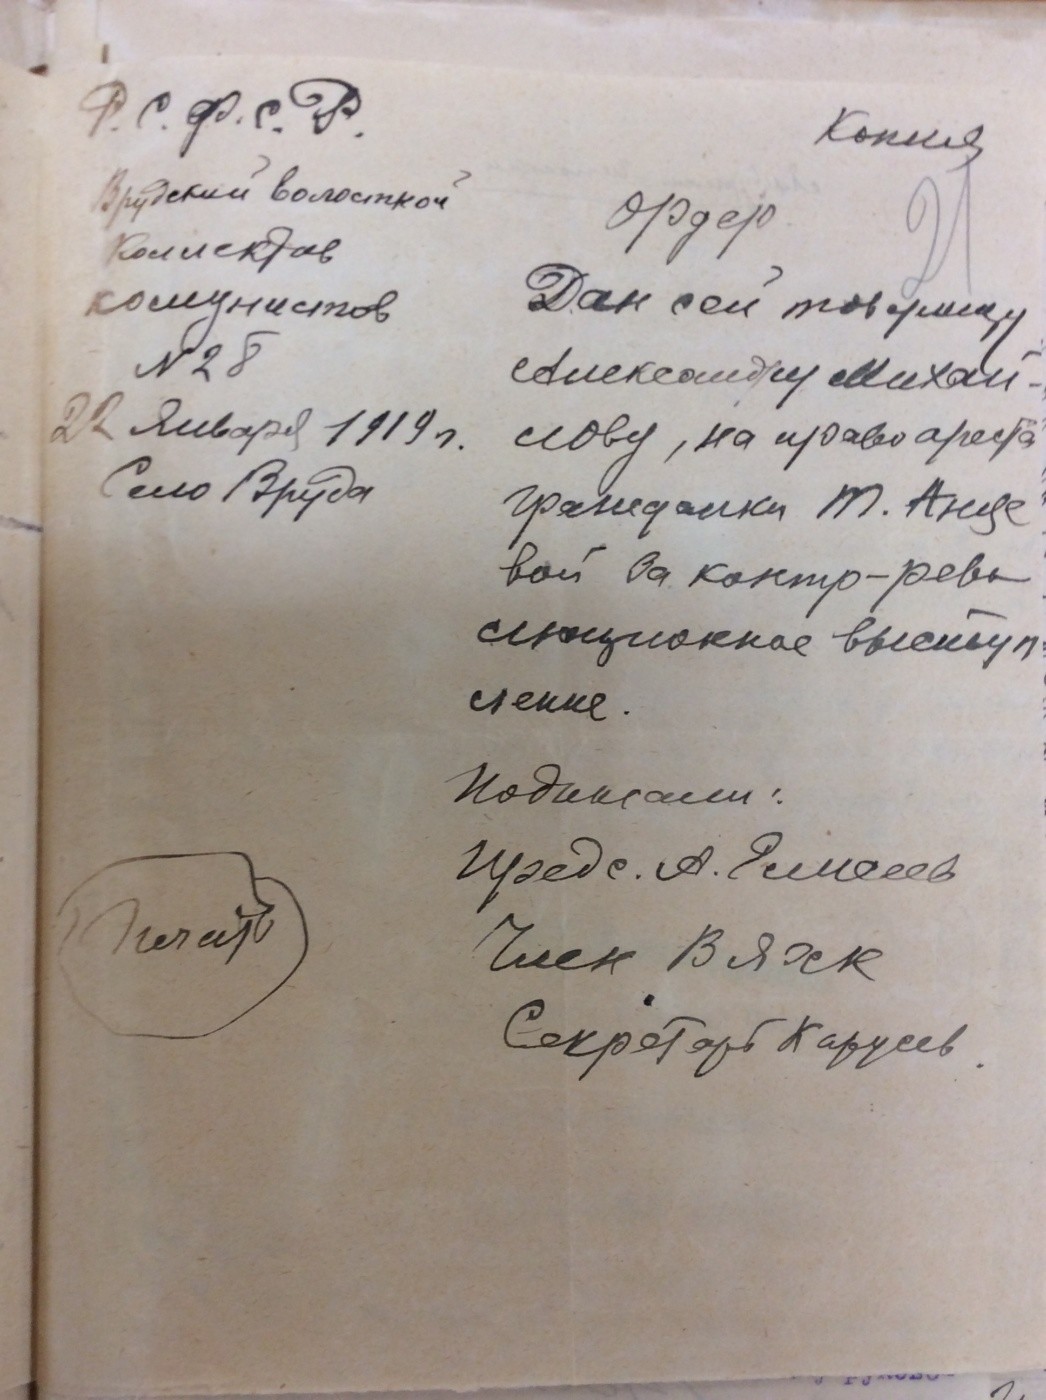 Р. С. Ф. С. Р.
Врудский волосткой
Коллектив
комунистов
№ 28
22 Января 1919 г.
Село Вруда
Копия
21
Ордер
Дан сей товарищу
Александру Михай-
лову, на право ареста
гражданки Т. Анце
вой за контр-рево
люционное выступ
ление.
Подписали:
Предс. А. Елисеев
Член Вяхк
Секретарь Карусев.
Печать